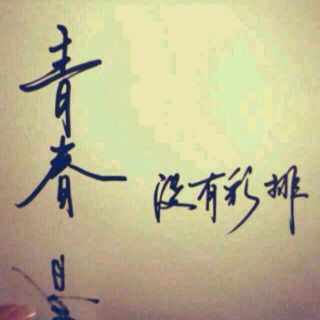 青春是
没有彩排